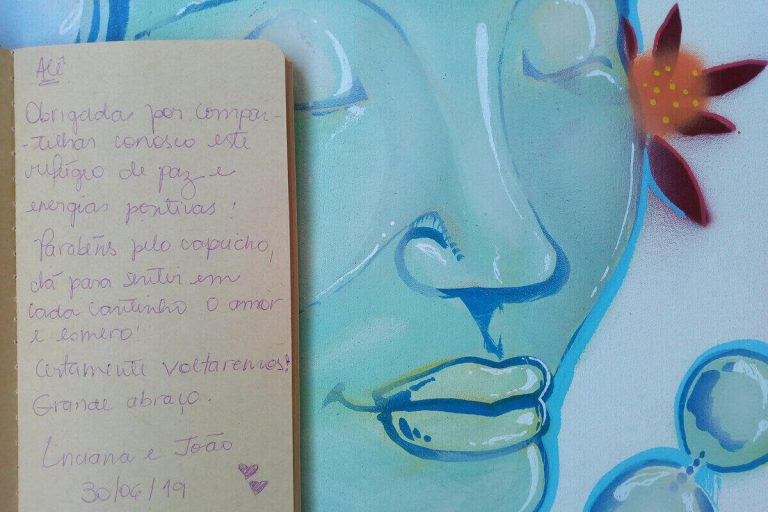 Alê
Obrigada por compar-
-tilhar conosco este
refúgio de paz e
energias positivas!
Parabéns pelo capricho,
dá para sentir em
cada cantinho o amor
e esmero!
Certamente voltaremos!
Grande abraço.
Luciana e João
30/06/19